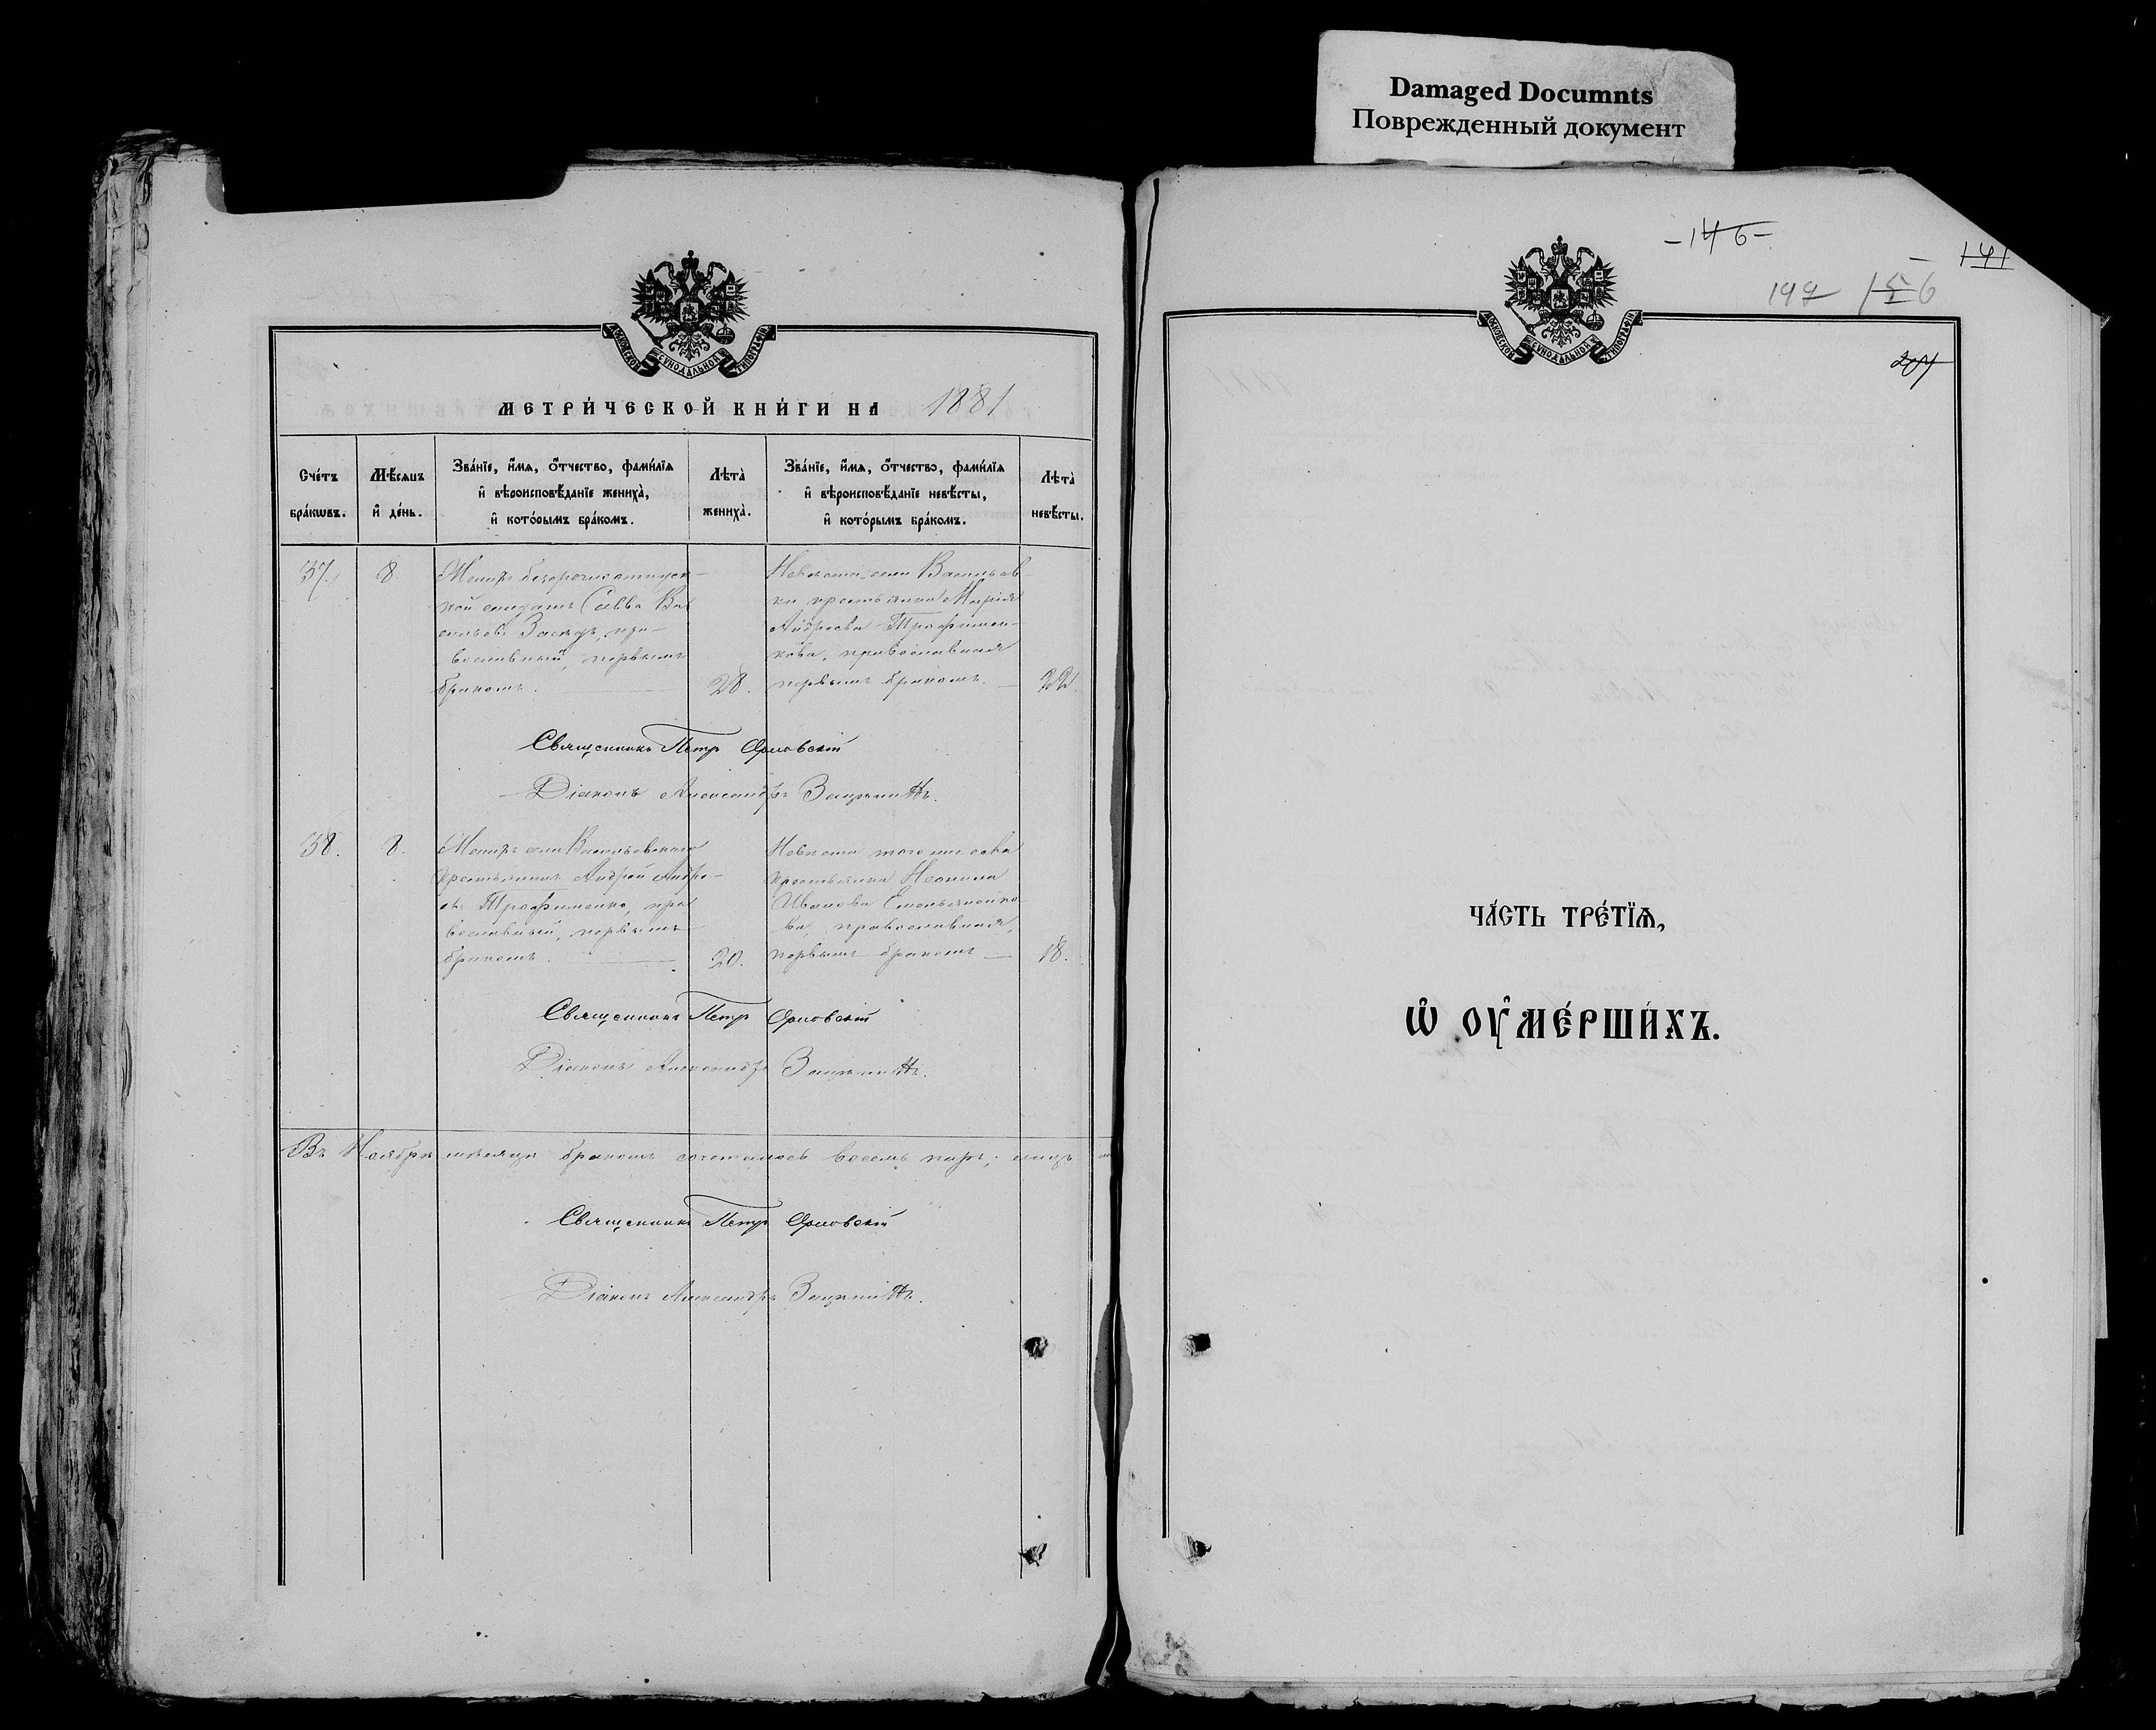 Damaged Documnts
Поврежденный документ
МОСКОВСКОЙ СУНОДАЛЬНОЙ ТИПОГРАФІИ
МЕТРИ́ЧЕСКОЙ КНИ́ГИ НА 1881
Сче́тъ бра́кѡвъ.
Мѣ́сяцъ и҆ де́нь.
Зва́нїе, и҆́мѧ, ѻ҆́тчество, фами́лїѧ
и҆ вѣроисповѣ́данїе жениха̀,
и҆ кото́рымъ бра́комъ.
Лѣта̀ жениха̀.
Зва́нїе, и҆́мѧ, ѻ҆́тчество, фами́лїѧ
и҆ вѣроисповѣ́данїе невѣ́сты,
и҆ кото́рымъ бра́комъ.
Лѣта̀ невѣ́сты.
37. 8.
Женихъ безсрочноотпуск-
ной солдатъ Савва Ва
сильевъ, пра-
вославный, первымъ
бракомъ. 28.
Невѣста села Васильев
ки крестьянка Марія
Андреева Трофимен-
кова, православная
первымъ бракомъ. 22.
Священникъ Петръ Орловскій
Діаконъ Александръ
38. 8.
Женихъ села Васильевскаго
крестьянинъ Андрей Андре-
евъ Трофименко, пра
вославный, первымъ
бракомъ. 20.
Невѣста того же села
крестьянка
Иванова Емельяненко-
ва, православная,
первымъ бракомъ 18.
Священникъ Петръ Орловскій
Діаконъ Александръ
Въ Ноябрѣ мѣсяцѣ бракомъ сочеталось восемь паръ;
Священникъ Петръ Орловскій
Діаконъ Александръ
-146-
141
156
207
МОСКОВСКОЙ СУНОДАЛЬНОЙ ТИПОГРАФІИ
ЧА́СТЬ ТРЕ́ТЇѦ,
Ѡ҆ ОУ҆МЕ́РШИХЪ.